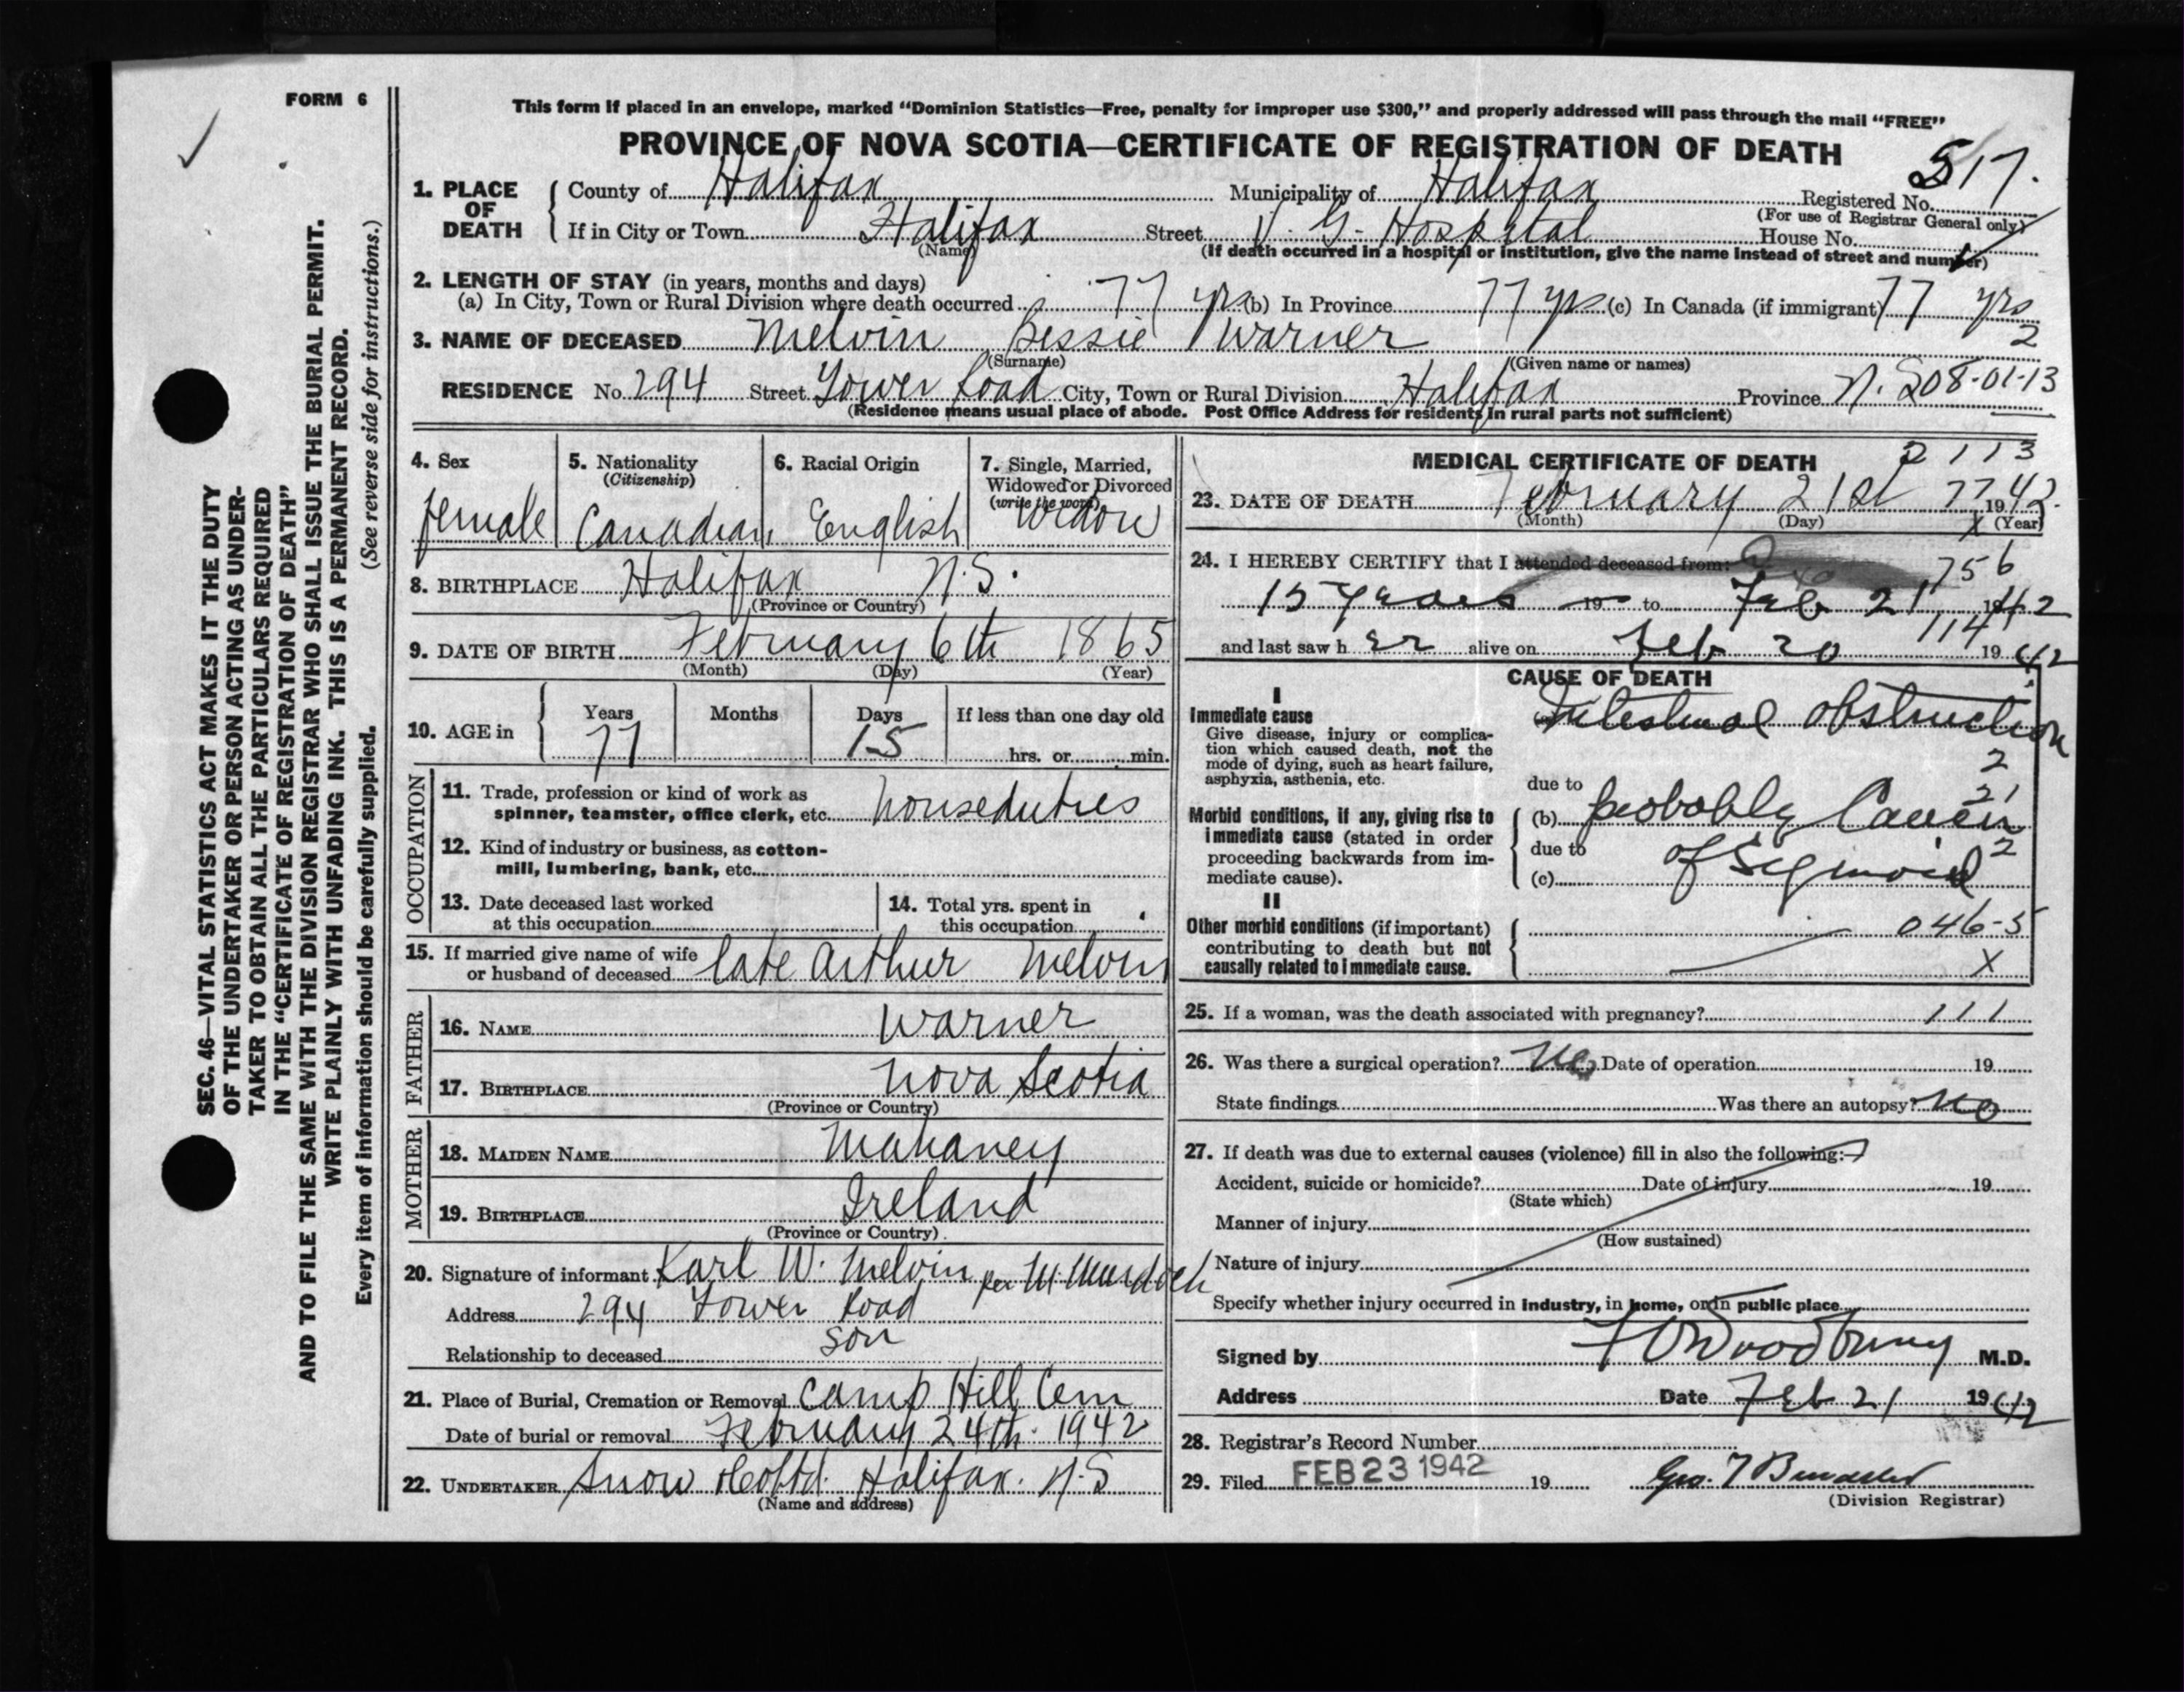 FORM 6
SEC. 46—VITAL STATISTICS ACT MAKES IT THE DUTY
OF THE UNDERTAKER OR PERSON ACTING AS UNDER-
TAKER TO OBTAIN ALL THE PARTICULARS REQUIRED
IN THE "CERTIFICATE OF REGISTRATION OF DEATH"
AND TO FILE THE SAME WITH THE DIVISION REGISTRAR WHO SHALL ISSUE THE BURIAL PERMIT.
WRITE PLAINLY WITH UNFADING INK. THIS IS A PERMANENT RECORD.
Every item of information should be carefully supplied. (See reverse side for instructions.)
This form if placed in an envelope, marked "Dominion Statistics—Free, penalty for improper use $300," and properly addressed will pass through the mail "FREE"
PROVINCE OF NOVA SCOTIA—CERTIFICATE OF REGISTRATION OF DEATH
1. PLACE OF DEATH County of Halifax Municipality of Halifax Registered No. 517.
(For use of Registrar General only)
If in City or Town Halifax Street V. G. Hospital House No.
(Name) (If death occurred in a hospital or institution, give the name instead of street and number)
2. LENGTH OF STAY (in years, months and days)
(a) In City, Town or Rural Division where death occurred 77 yrs (b) In Province 77 yrs (c) In Canada (if immigrant) 77 yrs
2
3. NAME OF DECEASED Melvin Bessie Warner
(Surname) (Given name or names)
RESIDENCE No. 294 Street Tower Road City, Town or Rural Division Halifax Province N. S 08-01-13
(Residence means usual place of abode. Post Office Address for residents in rural parts not sufficient)
4. Sex female
5. Nationality (Citizenship) Canadian
6. Racial Origin English
7. Single, Married, Widowed or Divorced (write the word) Widow
8. BIRTHPLACE Halifax N.S.
(Province or Country)
9. DATE OF BIRTH February 6th 1865
(Month) (Day) (Year)
10. AGE in Years 77 Months Days 15 If less than one day old hrs. or min.
OCCUPATION
11. Trade, profession or kind of work as
spinner, teamster, office clerk, etc. houseduties
12. Kind of industry or business, as cotton-
mill, lumbering, bank, etc.
13. Date deceased last worked
at this occupation
14. Total yrs. spent in
this occupation
15. If married give name of wife
or husband of deceased late Arthur Melvin
FATHER
16. NAME Warner
17. BIRTHPLACE Nova Scotia
(Province or Country)
MOTHER
18. MAIDEN NAME Mahaney
19. BIRTHPLACE Ireland
(Province or Country)
20. Signature of informant Karl W. Melvin per M Murdoch
Address 294 Tower Road
Relationship to deceased son
21. Place of Burial, Cremation or Removal Camp Hill Cem
Date of burial or removal February 24th. 1942
22. UNDERTAKER Snow & Co Ltd. Halifax. N.S
(Name and address)
MEDICAL CERTIFICATE OF DEATH 2113
23. DATE OF DEATH February 21st 77 1942.
(Month) (Day) X (Year)
24. I HEREBY CERTIFY that I attended deceased from: 756
15 years 19 to Feb 21, 1942
114
and last saw h er alive on Feb 20 1942
CAUSE OF DEATH
I
Immediate cause
Give disease, injury or complica-
tion which caused death, not the
mode of dying, such as heart failure,
asphyxia, asthenia, etc.
(a) Intestinal obstruction
2
due to
21
Morbid conditions, if any, giving rise to
immediate cause (stated in order
proceeding backwards from im-
mediate cause).
(b) probably Cancer
due to 2
(c) of Sigmoid
II
Other morbid conditions (if important)
contributing to death but not
causally related to immediate cause.
046-5
X
25. If a woman, was the death associated with pregnancy? 111
26. Was there a surgical operation? No Date of operation 19
State findings Was there an autopsy? No
27. If death was due to external causes (violence) fill in also the following:
Accident, suicide or homicide? Date of injury 19
(State which)
Manner of injury
(How sustained)
Nature of injury
Specify whether injury occurred in industry, in home, or in public place
Signed by F O Woodbury M.D.
Address Date Feb 21 1942
28. Registrar's Record Number
29. Filed FEB 23 1942 19 Geo.
(Division Registrar)